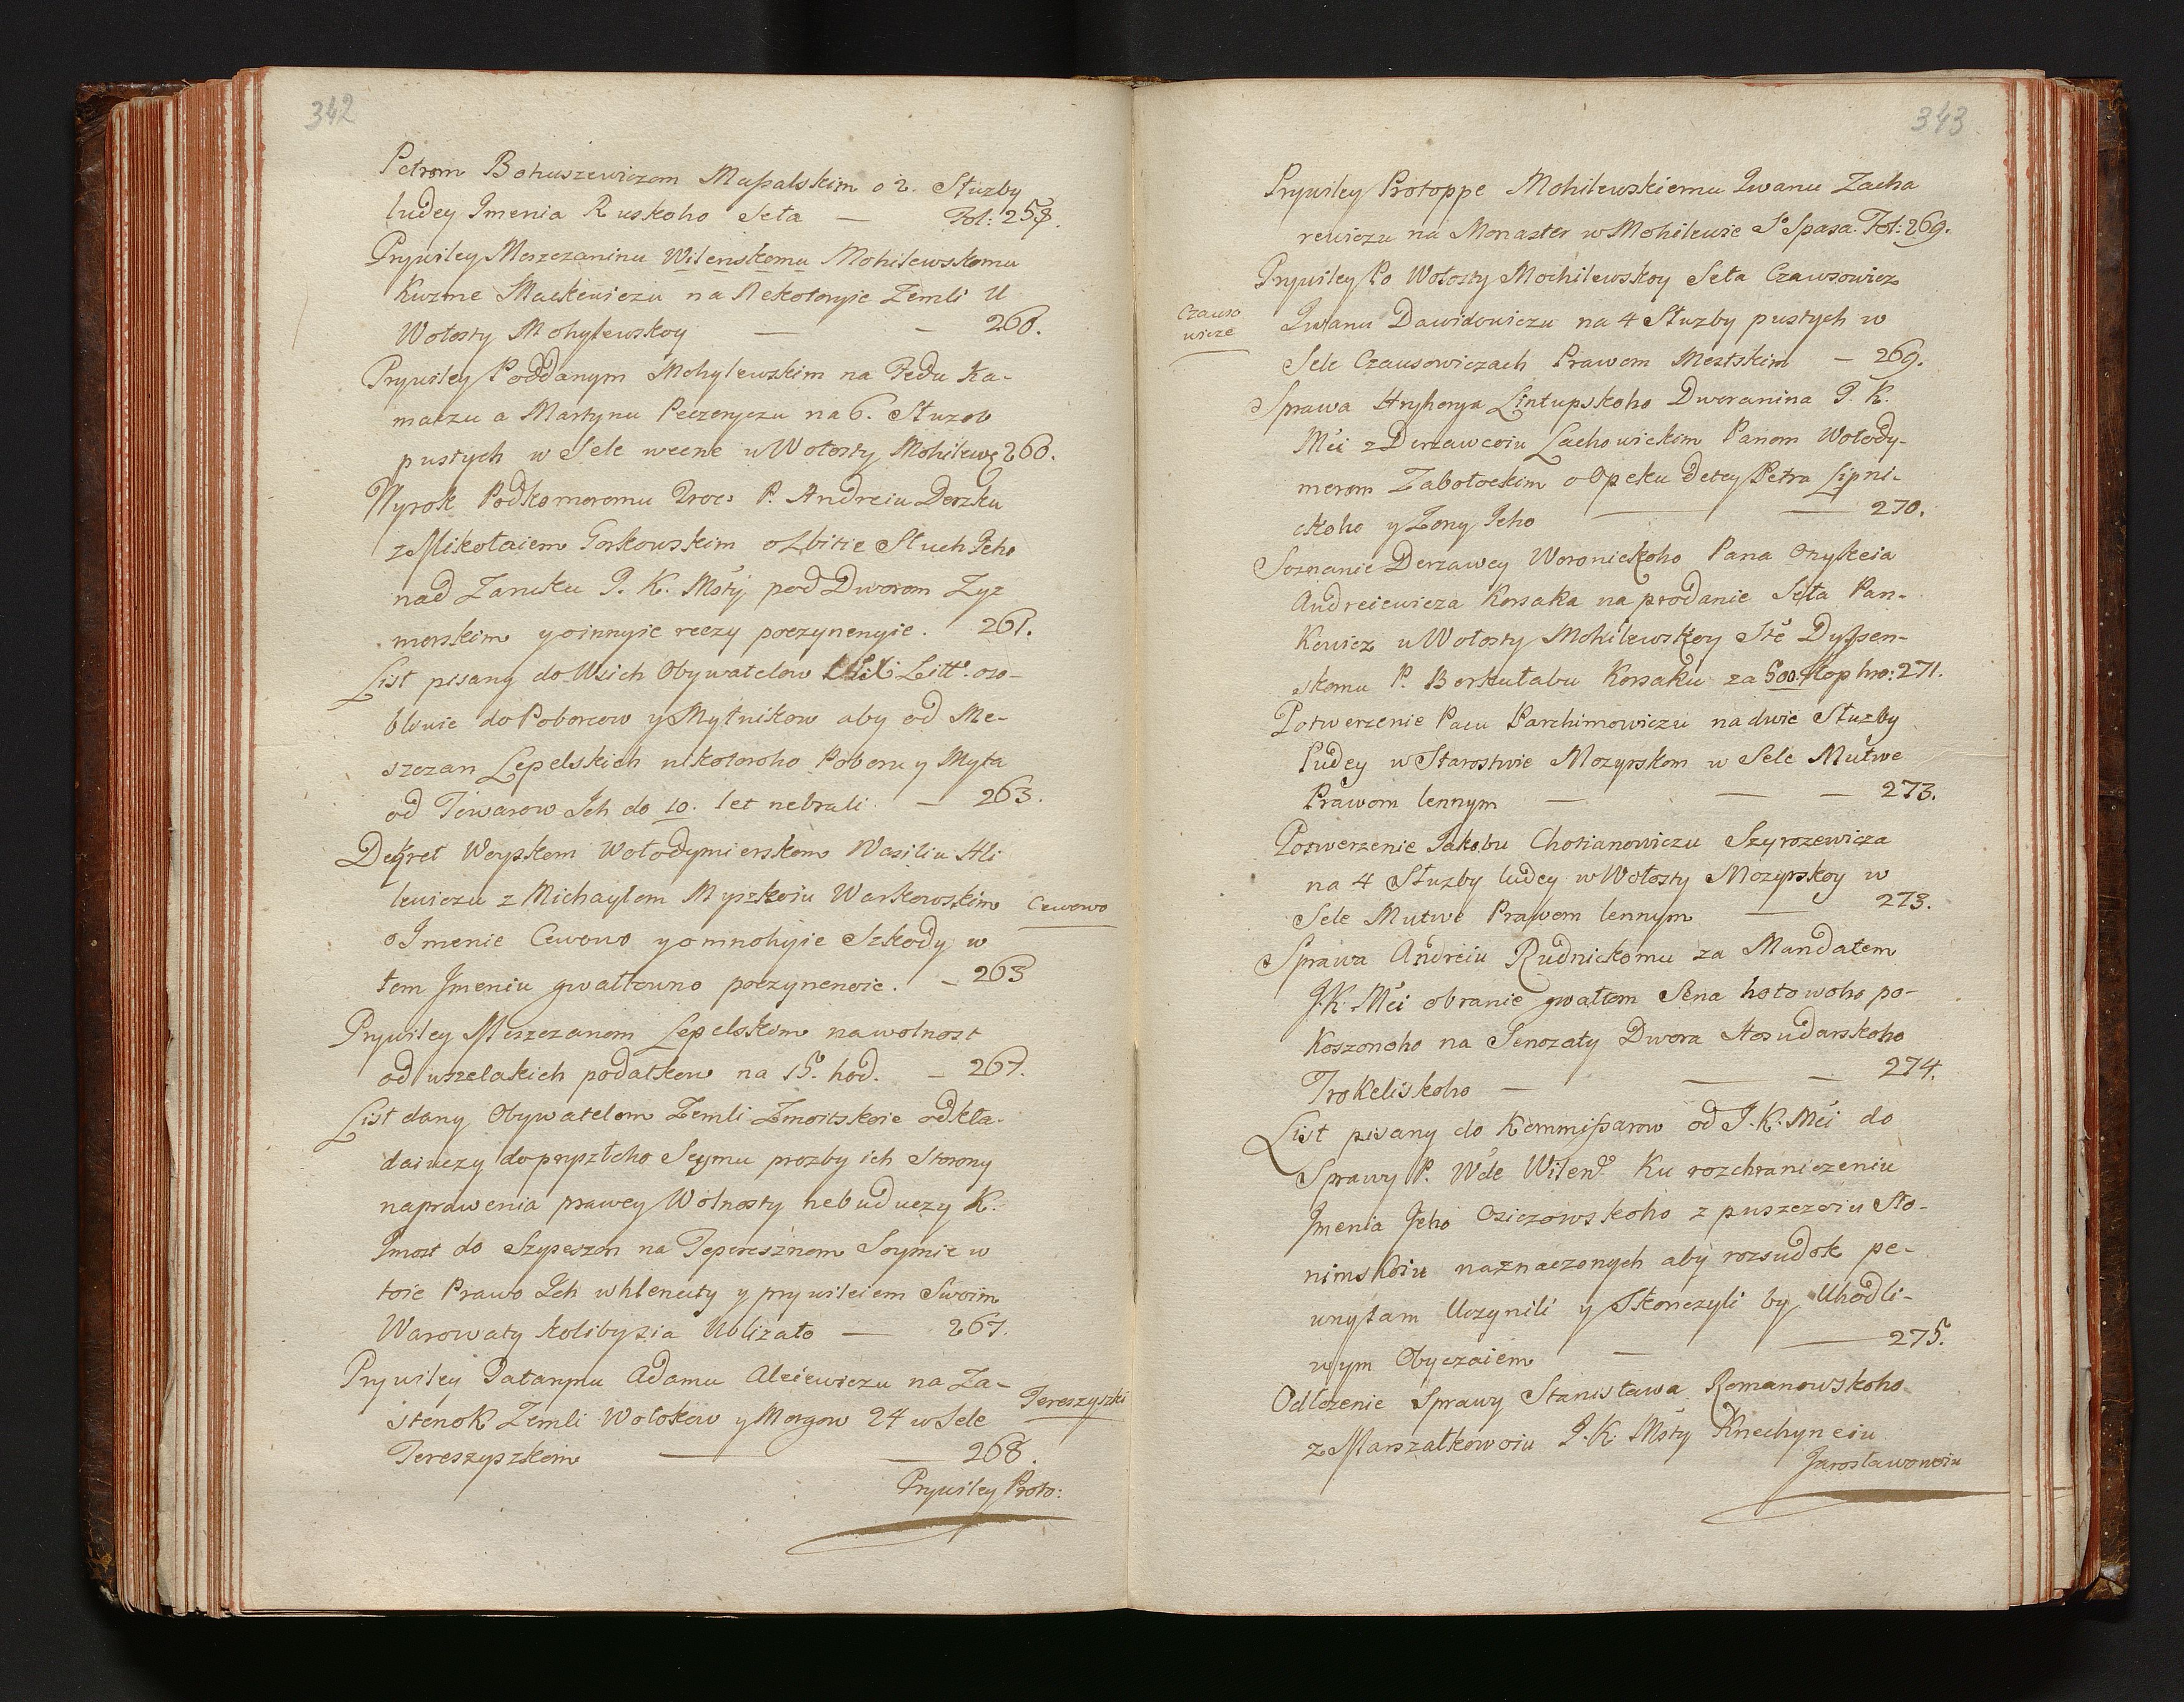 342
Petrom Bohuszewiczem Massalskim o 2. Służby
ludey Imenia Ruskoho Seła — Fol: 258.
Prywiley Meszczaninu Wilenskomu Mohilewskomu
Kuzme Mackewiczu na Nekotoryie Zemli U
Wołosty Mohylewskoy — — 260.
Prywiley Poddanym Mohylewskim na Fedu Ka-
maczu a Martynu Peczenyczu na 6. Służob
pustych w Sele weczne u Wołosty Mohilew: 260.
Wyrok Podkomoromu Proc: P. Andreiu Derszku
z Mikołaiem Gorkowskim o Zbitie Słuch Jeho
nad Zaruku J. K. Mosty pod Dworom Zyz
morskim y o innyie reczy poczynenyie. 261.
List pisany do Wsich Obywatelow Litt. oso-
bliwie do Poborcow y Mytnikow aby od Me-
szczan Lepelskich nikotoroho Poboru y Myta
od Towarow Ich do 10. let nebrali. — 263.
Dekret Woyskom Wołodymierskom Wasiliu Hli
lewiczu z Michayłom Myszkoiu Warkowskim
Cewowo
o Imenie Cewowo y o mnohyie Szkody w
tom Imeniu gwałtowno poczynenoie. — 263
Prywiley Meszczanom Lepelskim na wolnost
od wszelakich podatkow na 15. hod. — 267.
List dany Obywatelom Zemli Zmoitskoie odkła-
daiuczy do pryszłoho Seymu prozby ich Storony
naprawenia prawey Wolnosty nebuduczy K.
Imost do Szypeszon na Teperesznom Soymie w
toie Prawo Ich whlenuty y prywileiem Swoim
Warowaty kolibysia Ublizało — 267.
Prywiley Tatarynu Adamu Aleiewiczu na Za-
stenok Zemli Wołokow y Morgow 24 w Sele
Tereszyszki
Tereszyszkom — — 268.
Prywiley Proto:
343
Prywiley Protoppe Mohilewskiemu Iwanu Zacha
rewiczu na Monaster w Mohilewie So Spasa. Fol: 269.
Prywiley Po Wołosty Mochilewskoy Seła Czausowicz
Czauso
wicze
Iwanu Dawidowiczu na 4 Służby pustych w
Sele Czausowiczach Prawom Mestskim — 269.
Sprawa Hryhorya Lintupskoho Dworanina J. K.
Mci z Derzawcoiu Lachowickim Panom Wołody-
merom Zabołockim o Opeku detey Petra Lipni-
ckoho y Zony Jeho — — 270.
Soznanie Derzawcy Woronickoho Pana Onykeia
Andreiewicza Korsaka na prodanie Seła Pan-
kowicz u Wołosty Mohilewskoy Ste Dyssen-
skomu P. Berkułabu Korsaku za 500. Kop hro: 271.
Potwerzenie Pacu Parchimowiczu na dwie Służby
ludey w Starostwie Mozyrskom w Sele Mutwe
Prawom lennym — — — 273.
Potwerzenie Jakobu Chotianowiczu Szyrozewicza
na 4 Służby ludey w Wołosty Mozyrskoy w
Sele Mutwe Prawom lennym — 273.
Sprawa Andreiu Rudnickomu za Mandatem
J. K. Mci obranie gwałtom Sena hotowoho po-
koszonoho na Senozaty Dwora Hosudarskoho
Trokeliskoho — — — 274.
List pisany do Kommissarow od J. K. Mci do
Sprawy P. Wde Wileno Ku rozchraniczeniu
Imenia Jeho Osiczowskoho z puszczoiu Sło-
nimskoiu naznaczonych aby rozsudok pe-
wnytam Uczynili y Skonczyli by Uhodli-
wym Obyczaiem — — 275.
Odłożenie Sprawy Stanisława Romanowskoho
z Marszałkowoiu J. K. Mosty Knechyneiu
Jarosławowoiu